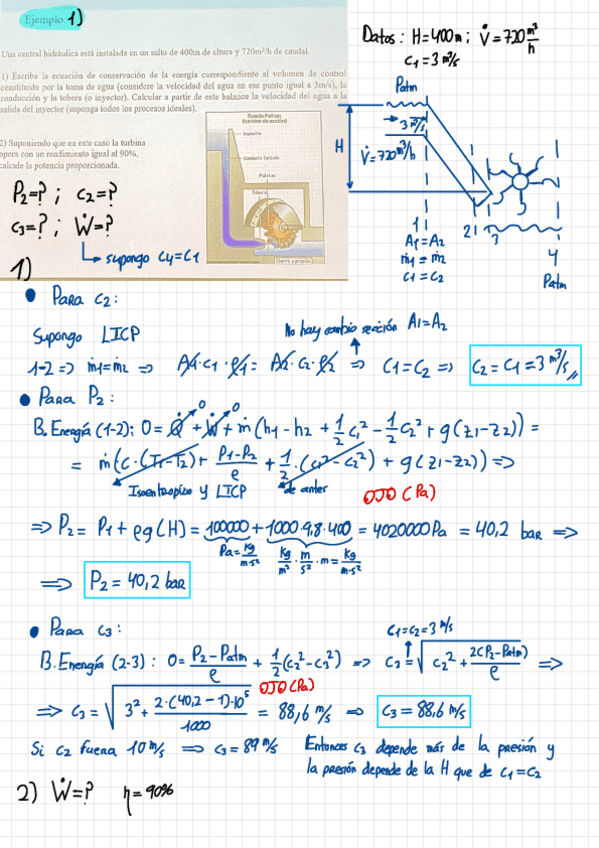 Ejemplo 1)
Una central hidráulica está instalada en un salto de 400m de altura y 720m³/h de caudal.
1) Escriba la ecuación de conservación de la energía correspondiente al volumen de control
constituido por la toma de agua (considere la velocidad del agua en ese punto igual a 3m/s), la
conducción y la tobera (o inyector). Calcular a partir de este balance la velocidad del agua a la
salida del inyector (suponga todos los procesos ideales).
2) Suponiendo que en este caso la turbina
opera con un rendimiento igual al 90%,
calcule la potencia proporcionada.
Rueda Pelton
(turbina de acción)
Depósito
Conducto forzado
Paletas
Tobera
Datos: H=400m ; V̇=720 m³/h
c₁=3 m³/s
Patm
3 m³/s
H
V̇=720 m³/h
1 |
2 |
3
4
A₁=A₂
ṁ₁=ṁ₂
c₁=c₂
Patm
P₂=? ; c₂=?
c₃=? ; Ẇ=?
↳ supongo c₄=c₁
1)
• Para c₂:
Supongo LICP
No hay cambio sección A₁=A₂
1-2 => ṁ₁=ṁ₂ => A₁·c₁·ρ₁ = A₂·c₂·ρ₂ => c₁=c₂ => c₂=c₁=3 m³/s //
• Para P₂:
B. Energía (1-2): 0 = Q̇ + Ẇ + ṁ(h₁-h₂ + 1/2 c₁² - 1/2 c₂² + g(z₁-z₂)) =
0 0
= ṁ(c·(T₁-T₂) + (P₁-P₂)/ρ + 1/2·(c₁²-c₂²) + g(z₁-z₂)) =>
Isoentropico y LICP
de antes
OJO (Pa)
=> P₂ = P₁ + ρg(H) = 100000 + 1000·9,8·400 = 4020000 Pa = 40,2 bar =>
Pa = kg/m·s²
kg/m³ · m/s² · m = kg/m·s²
=> P₂ = 40,2 bar
• Para c₃:
c₁=c₂=3 m/s
B. Energía (2-3): 0 = (P₂-Patm)/ρ + 1/2(c₂²-c₃²) => c₃ = √(c₂² + 2(P₂-Patm)/ρ) =>
OJO (Pa)
=> c₃ = √(3² + 2·(40,2-1)·10⁵/1000) = 88,6 m/s => c₃ = 88,6 m/s
Si c₂ fuera 10 m/s => c₃ = 89 m/s
Entonces c₃ depende más de la presión y
la presión depende de la H que de c₁=c₂
2) Ẇ=? η=90%